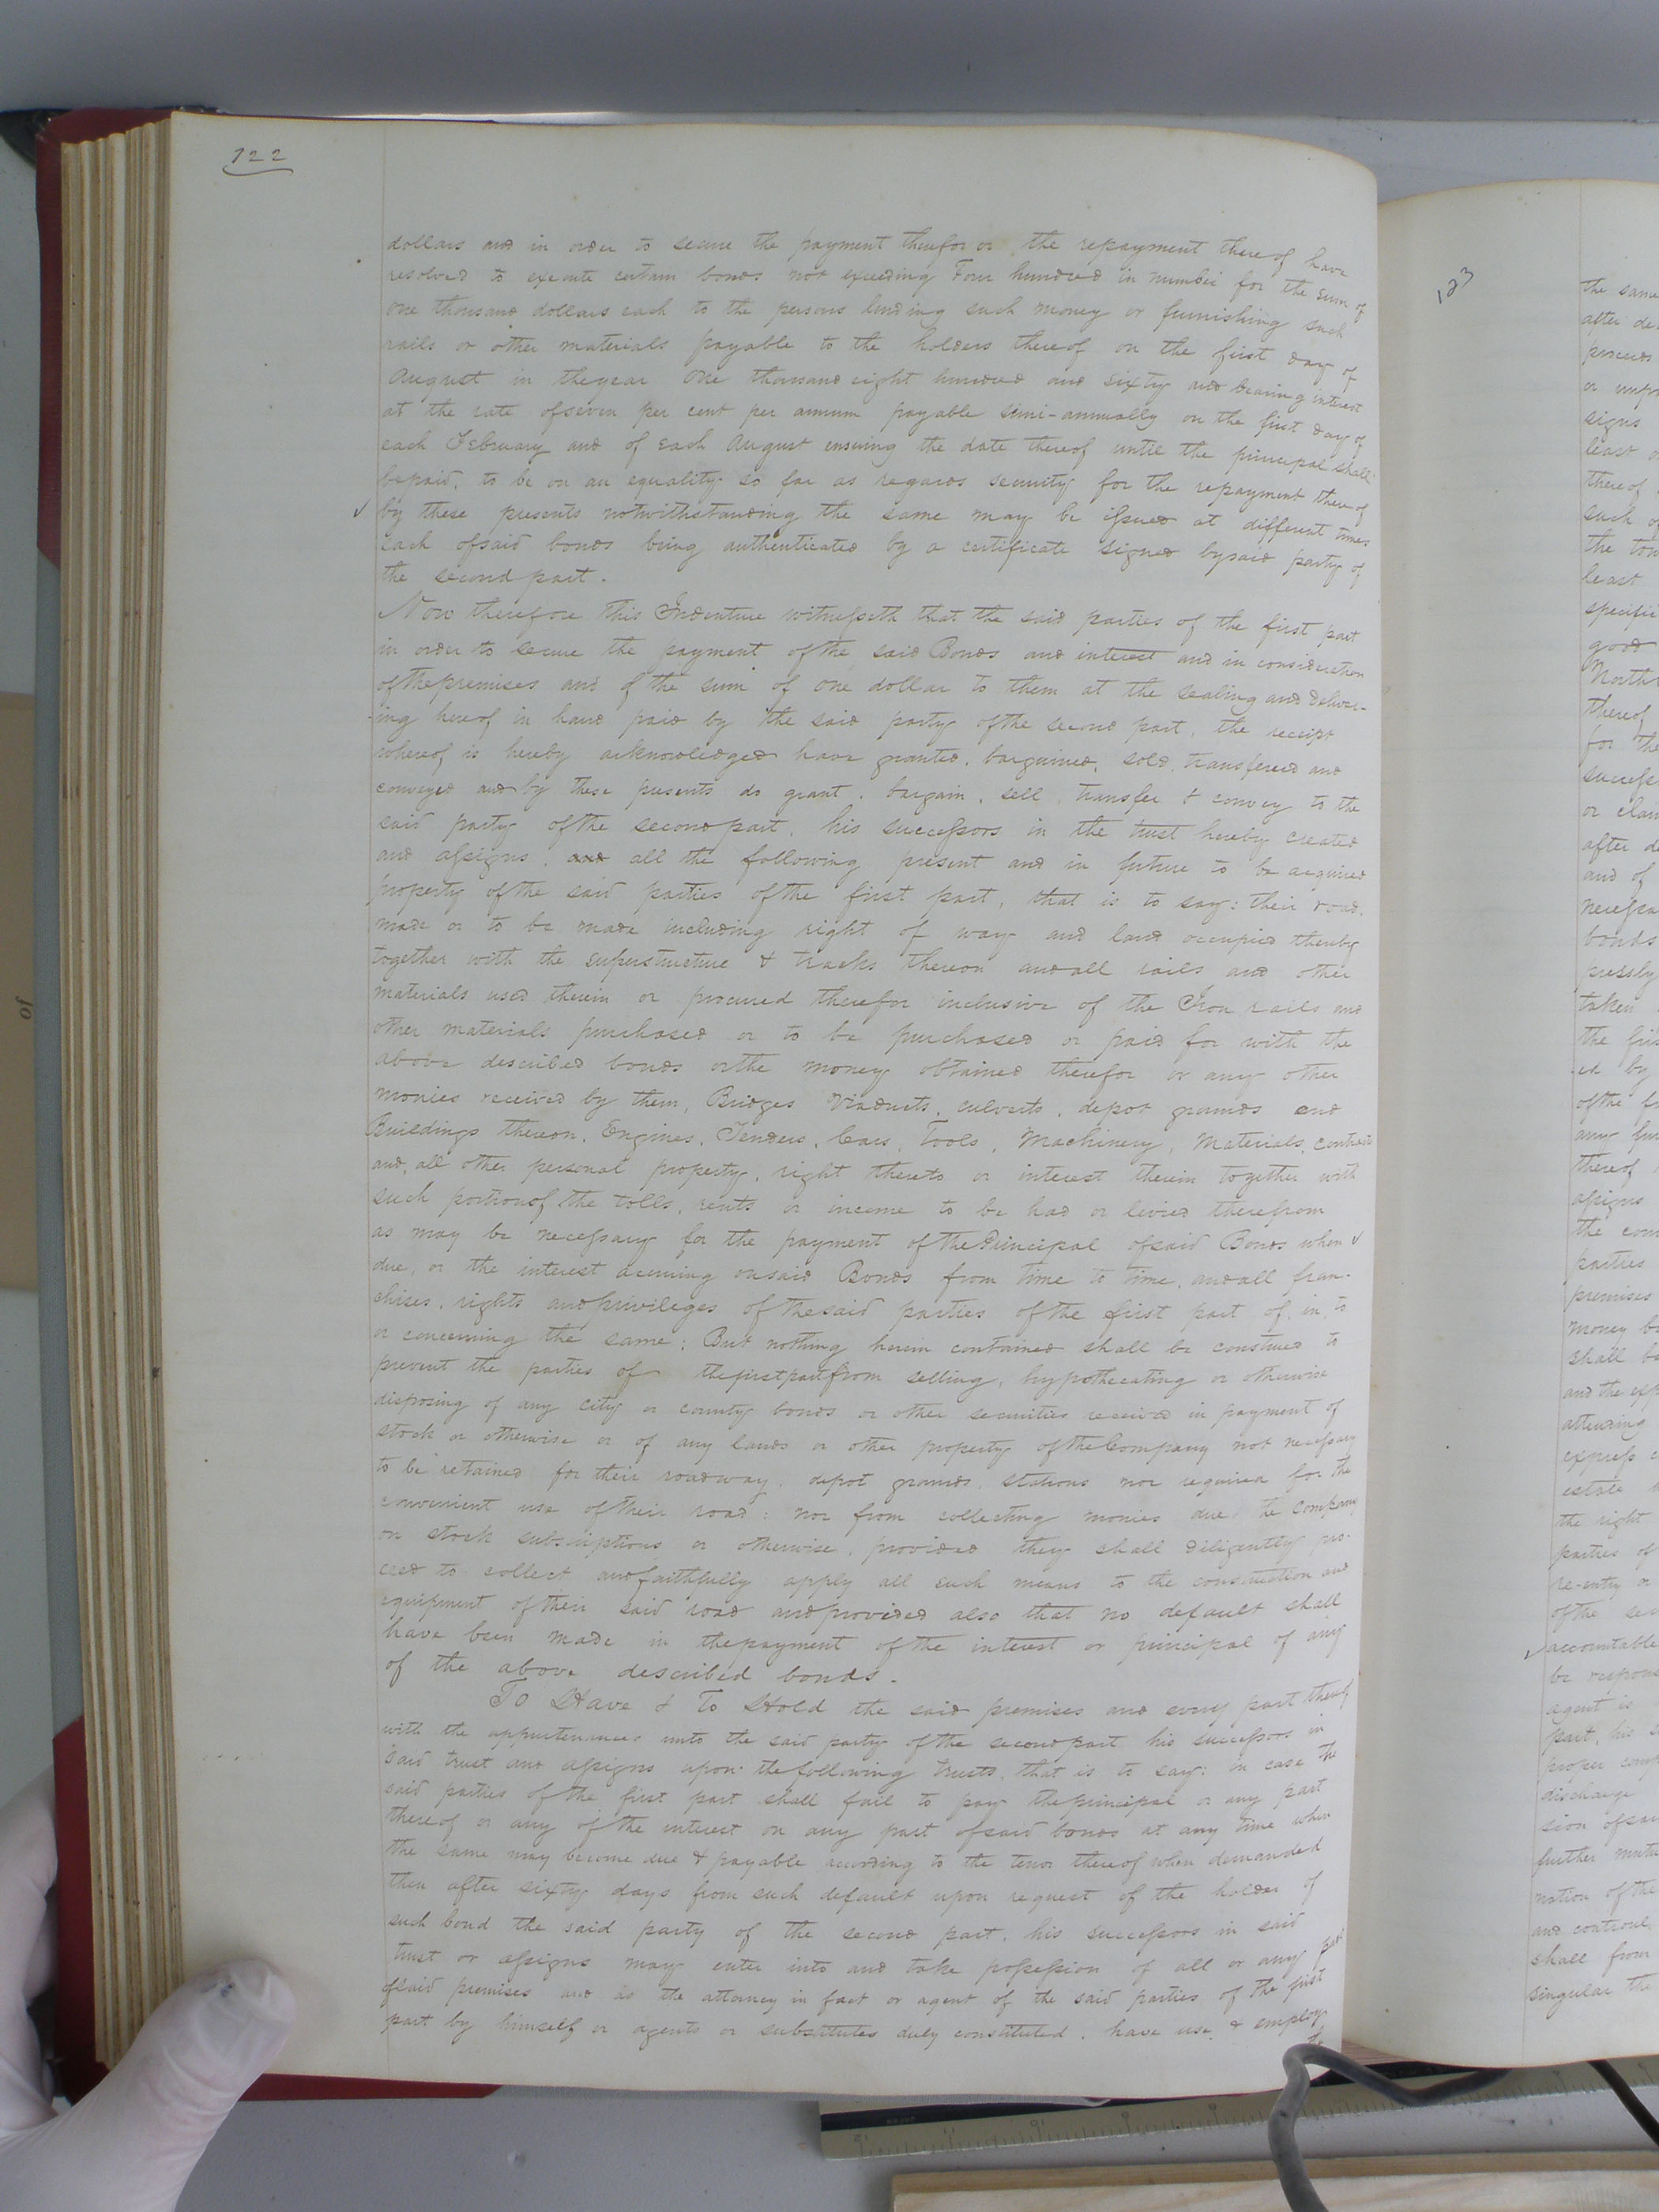 122
dollars and in order to secure the payment therefor or the repayment thereof have
resolved to execute certain bonds not exceeding Four hundred in number for the sum of
one thousand dollars each to the persons lending such money or furnishing such
rails or other materials payable to the holders thereof on the first day of
August in the year One thousand eight hundred and sixty and bearing interest
at the rate of seven per cent per annum payable simi-annually on the first day of
each February and of each August ensuing the date thereof until the principal shall
be paid, to be on an equality so far as regards security for the repayment thereof
by these presents notwithstanding the same may be issued at different times
each of said bonds being authenticated by a certificate signed by said party of
the second part.
Now therefore This Indenture witnesseth that the said parties of the first part
in order to secure the payment of the said Bonds and interest and in consideration
of the premises and of the sum of one dollar to them at the sealing and deliver-
-ing hereof in hand paid by the said party of the second part, the receipt
whereof is hereby acknowledged have granted, bargained, sold, transfered and
conveyed and by these presents do grant, bargain, sell, transfer & convey to the
said party of the second part, his successors in the trust hereby created
and assigns, and all the following present and in future to be acquired
property of the said parties of the first part, that is to say: their road,
made or to be made including right of way and land occupied thereby
together with the superstructure & tracks thereon and all rails and other
materials used therein or procured therefor inclusive of the Iron rails and
other materials purchased or to be purchased or paid for with the
above described bonds or the money obtained therefor or any other
monies received by them, Bridges Viaducts, culverts, depot grounds and
Buildings thereon, Engines, Tenders, Cars, Tools, Machinery, Materials, contracts
and, all other personal property, right thereto or interest therein together with
such portion of the tolls, rents or income to be had or levied therefrom
as may be necessary for the payment of the Principal of said Bonds when
due, or the interest accruing on said Bonds from time to time, and all fran-
chises, rights and privileges of the said parties of the first part of, in, to
or concerning the same; But nothing herein contained shall be construed to
prevent the parties of the first part from selling, hypothecating or otherwise
disposing of any city or county bonds or other securities received in payment of
stock or otherwise or of any lands or other property of the Company not necessary
to be retained for their roadway, depot grounds, stations nor required for the
convenient use of their road: nor from collecting monies due the company
on stock subscriptions or otherwise, provided they shall diligently pro-
ceed to collect and faithfully apply all such means to the construction and
equipment of their said road and provided also that no default shall
have been made in the payment of the interest or principal of any
of the above described bonds.
To Have & To Hold the said premises and every part thereof
with the appurtenances unto the said party of the second part his successors in
said trust and assigns upon the following trusts, that is to say: in case the
said parties of the first part shall fail to pay the principal or any part
thereof or any of the interest on any part of said bonds at any time when
the same may become due & payable according to the tenor thereof when demanded
then after sixty days from such default upon request of the holder of
such bond the said party of the second part, his successors in said
trust or assigns may enter into and take possession of all or any part
of said premises and as the attorney in fact or agent of the said parties of the first
part by himself or agents or substitutes duly constituted, have use, & employ
the
123
the same
after de
proceeds
signs
least
thereof
such of
the
least
specific
good
North
thereof
for the
success
or clai
after de
and of
necessa
bonds
pressly
taken
the firs
ed by
of the f
any fu
thereof
assigns
the com
parties
premises
money be
shall be
and the exp
attending
express
estate
the right
parties of
re-entry or
of the sec
accountable
be respons
agent is
part, his s
proper comp
discharge
sion of sai
further mutu
nation of the
and controul
shall from
singular the